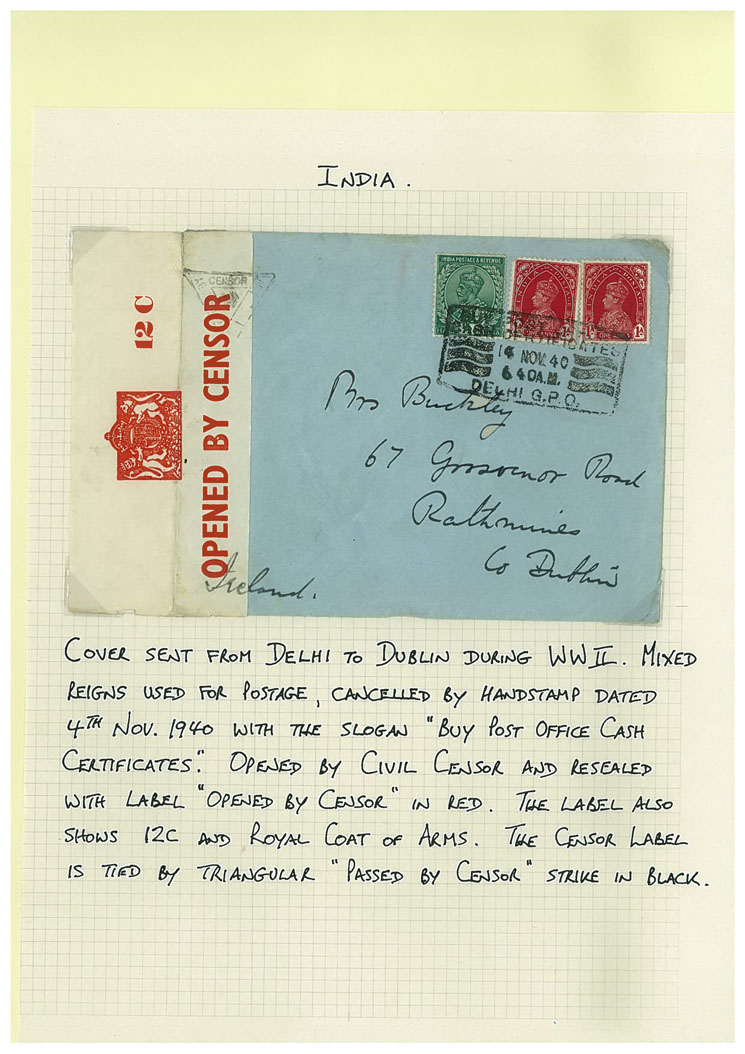 INDIA.
12 C
CENSOR
OPENED BY CENSOR
INDIA POSTAGE & REVENUE
1A
CERTIFICATES
14 NOV. 40
6.40A.M.
DELHI G.P.O.
Mrs Buckley
67 Grosvenor Road
Rathmines
Co Dublin
Ireland.
COVER SENT FROM DELHI TO DUBLIN DURING WWII. MIXED
REIGNS USED FOR POSTAGE, CANCELLED BY HANDSTAMP DATED
4TH NOV. 1940 WITH THE SLOGAN "BUY POST OFFICE CASH
CERTIFICATES." OPENED BY CIVIL CENSOR AND RESEALED
WITH LABEL "OPENED BY CENSOR" IN RED. THE LABEL ALSO
SHOWS 12C AND ROYAL COAT OF ARMS. THE CENSOR LABEL
IS TIED BY TRIANGULAR "PASSED BY CENSOR" STRIKE IN BLACK.